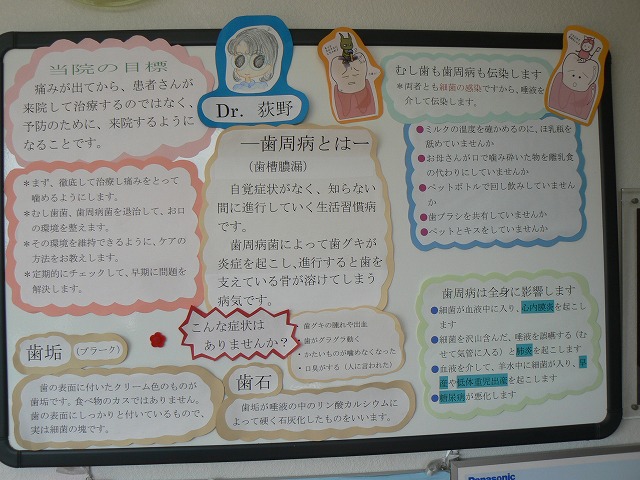 当院の目標
痛みが出てから、患者さんが
来院して治療するのではなく、
予防のために、来院するように
なることです。
＊まず、徹底して治療し痛みをとって
噛めるようにします。
＊むし歯菌、歯周病菌を退治して、お口
の環境を整えます。
＊その環境を維持できるように、ケアの
方法をお教えします。
＊定期的にチェックして、早期に問題を
解決します。
Dr. 荻野
―歯周病とは―
（歯槽膿漏）
自覚症状がなく、知らない
間に進行していく生活習慣病
です。
歯周病菌によって歯グキが
炎症を起こし、進行すると歯を
支えている骨が溶けてしまう
病気です。
こんな症状は
ありませんか？
・歯グキの腫れや出血
・歯がグラグラ動く
・かたいものが噛めなくなった
・口臭がする（人に言われた）
歯垢（プラーク）
歯の表面に付いたクリーム色のものが
歯垢です。食べ物のカスではありません。
歯の表面にしっかりと付いているもので、
実は細菌の塊です。
歯石
歯垢が唾液の中のリン酸カルシウムに
よって硬く石灰化したものをいいます。
むし歯も歯周病も伝染します
＊両者とも細菌の感染ですから、唾液を
介して伝染します。
●ミルクの温度を確かめるのに、ほ乳瓶を
舐めていませんか
●お母さんが口で噛み砕いた物を離乳食
の代わりにしていませんか
●ペットボトルで回し飲みしていません
か
●歯ブラシを共有していませんか
●ペットとキスをしていませんか
歯周病は全身に影響します
●細菌が血液中に入り、心内膜炎を起こし
ます
●細菌を沢山含んだ、唾液を誤嚥する（む
せて気管に入る）と肺炎を起こします
●血液を介して、羊水中に細菌が入り、早
産や低体重児出産を起こします
●糖尿病が悪化します
Panasonic